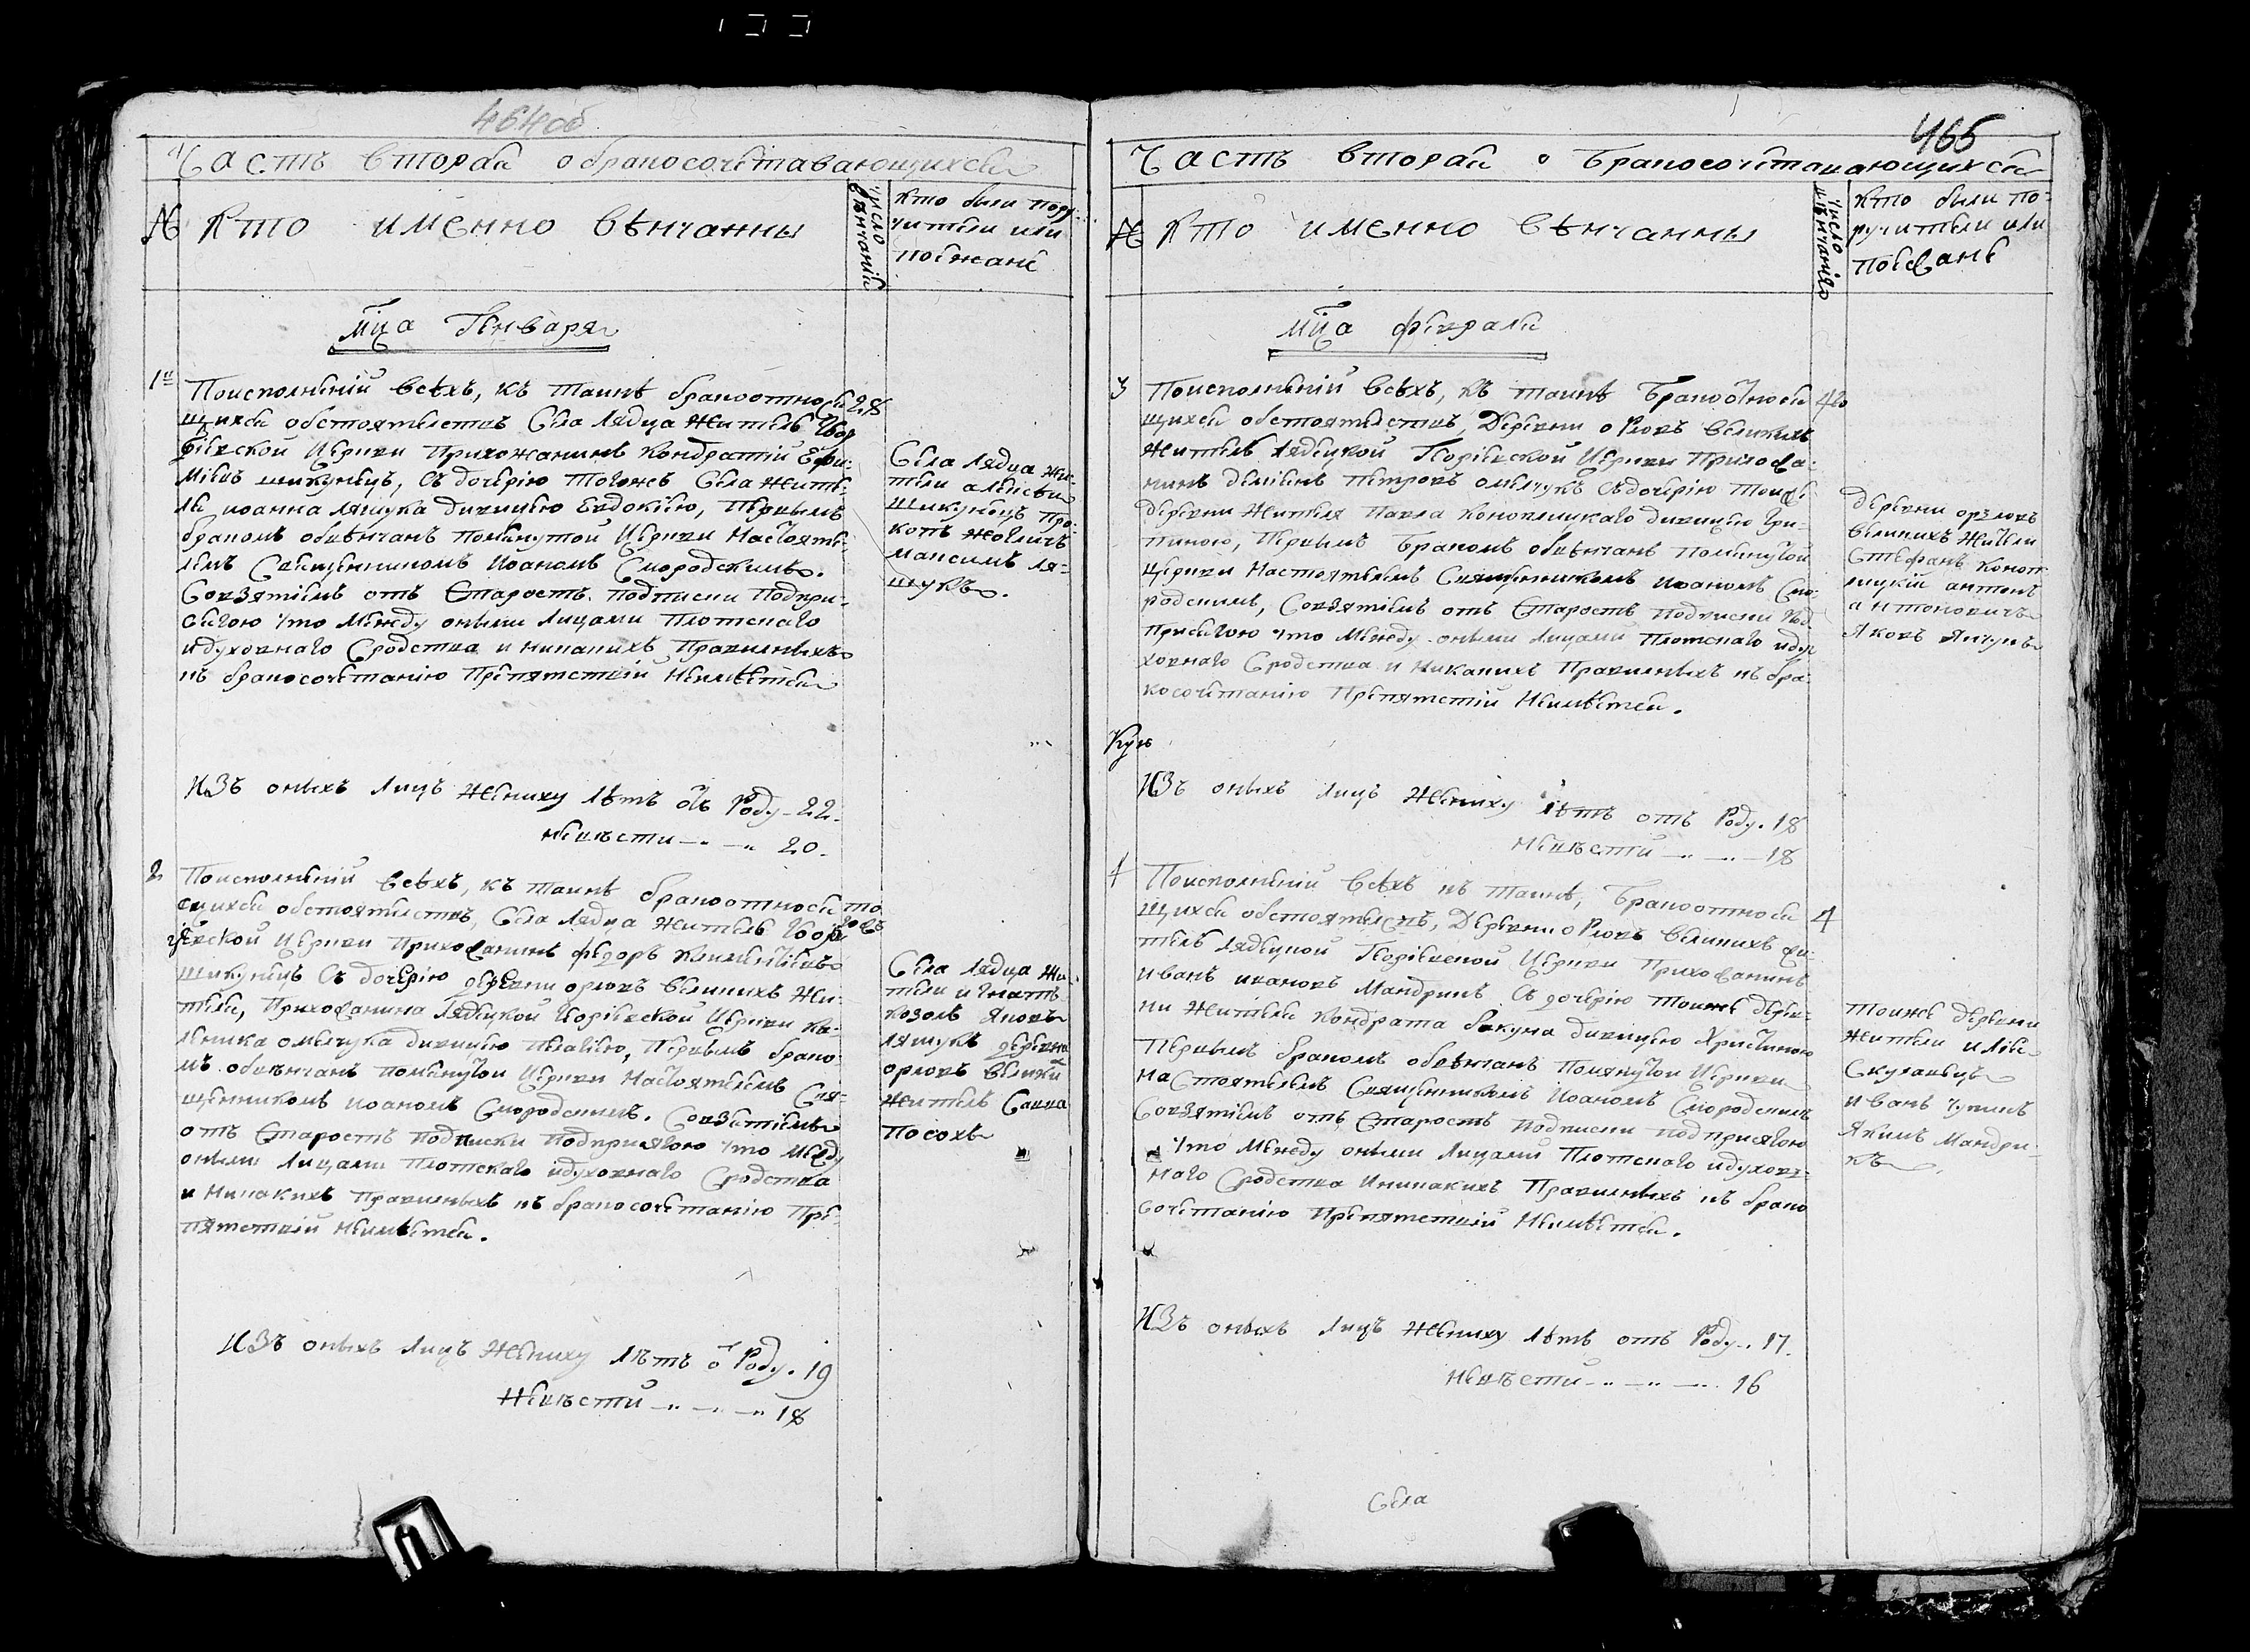 464об
Часть вторая о бракосочетавающихся
№ Кто именно вѣнчанны
число вѣнчанія
Кто были пору-
чители или
поезжане
Мца Генваря
1й
Поисполненіи всѣхъ, къ таинѣ бракоотнося 28
щихся обстоятелствъ Села Лядца житель Геор
гіевской Церкви Прихожанинъ Кондратій Ефи-
міевъ шикунецъ, съ дочерію тогожъ Села жите-
ля иоанна ляшука дивицею Евдокіею, Первымъ
бракомъ обвѣнчанъ помянутой Церкви Настояте-
лемъ Священникомъ Иоаномъ Смородскимъ.
Совзятіемъ отъ Старостъ подписки Подпри-
сягою что Между оными Лицами Плотскаго
идуховнаго Сродства и никакихъ Правилныхъ
къ бракосочетанію Препятствій Неимѣется
Села Лядца жи-
тели алексѣй
шикунецъ Про-
копъ
Максимъ ля-
шукъ.
Изъ оныхъ Лицъ Жениху лѣтъ отъ Роду - 22.
Невѣсти — 20.
2
Поисполненіи всѣхъ, къ таинѣ бракоотнося тогожъ
щихся обстоятелствъ, Села Лядца Житель Геор
гіевской Церкви Прихожанинъ федоръ Климентіевъ
шикунецъ Съ дочерію деревни орловъ великихъ Жи-
теля, Прихожанина Лядецкой Георгіевской Церкви Ка-
леника омелчука дивицею Пелагіею, Первымъ брако-
мъ обвѣнчанъ помянутой Церкви Настоятелемъ Свя-
щенникомъ Иоаномъ Смородскимъ. Совзятіемъ
отъ Старостъ подписки подприсягою что Между
оными Лицами Плотскаго идуховнаго Сродства
и Никакихъ Правилныхъ къ бракосочетанію Пре-
пятствій Неимѣется.
Села Лядца Жи-
тели игнатъ
козолъ Яковъ
Ляшукъ деревни
орловъ велики
житель Савка
Посохъ
Изъ оныхъ Лицъ Жениху лѣтъ от Роду. 19
Невѣсти — 18
465
Часть вторая о Бракосочетавающихся
№ Кто именно вѣнчанны
число вѣнчанія
Кто были по-
ручители или
поезжане
Мца февраля
3
Поисполненіи всѣхъ, къ таинѣ Бракоотнося 4го
щихся обстоятелствъ, Деревни орловъ великихъ
Житель Лядецкой Георгіевской Церкви Прихожа-
нинъ демянъ Петровъ омелчукъ Съдочерію тоиже
деревни Жителя Павла Коноплицкаго дивицею Гри-
пиною, Первымъ Бракомъ обвѣнчанъ помянутой
Церкви Настоятелемъ Священникомъ Иоаномъ Смо-
родскимъ, Совзятіемъ отъ Старостъ подписки Под
Присягою что Между оными Лицами Плотскаго иду-
ховнаго Сродства и Никакихъ Правилныхъ къ бра-
косочетанію Препятстій Неимѣется.
деревни орловъ
великихъ Жители
Стефанъ Коноп-
лицкій антонъ
антоновичъ
Яковъ Янчукъ
Изъ оныхъ Лицъ Жениху лѣтъ отъ Роду. 18
Невѣсти — 18
4
Поисполненіи всѣхъ къ таинѣ, Бракоотнося 4
щихся обстоятелствъ, Деревни орловъ великихъ жи-
тель Лядецкой Георгіевской Церкви Прихожанинъ
иванъ ивановъ Мандрикъ Съ дочерію тоиже дерев-
ни Жителя Кондрата бакуна дивицею Христиною
Первымъ бракомъ обвѣнчанъ Помянутой Церкви
Настоятелемъ Священникомъ Иоаномъ Смородскимъ
Совзятіемъ отъ Старостъ Подписки подприсягою
что Между оными Лицами Плотскаго идухов-
наго Сродства Иникакихъ Правилныхъ къ брако
сочетанію Препятствій Неимѣется.
Тоиже деревни
Жители
Скулавецъ
иванъ
Якимъ Мандри-
къ
Изъ оныхъ Лицъ Жениху лѣтъ отъ Роду. 17.
Невѣсти — 16
Села